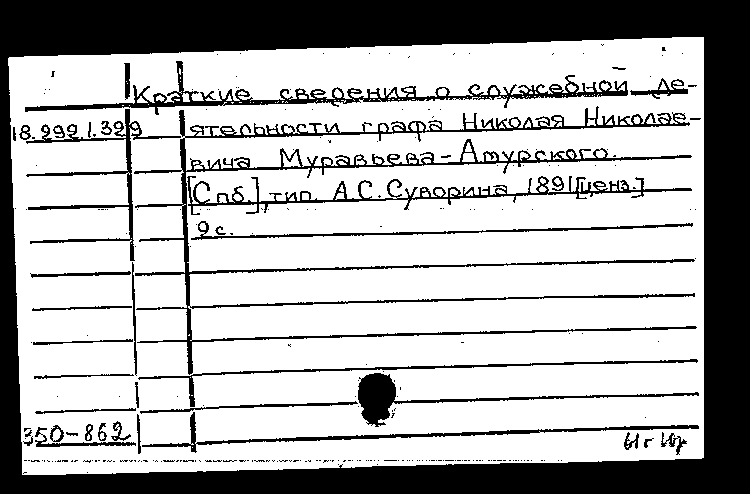 Краткие сведения о служебной де-
18.292 1.329 ятельности графа Николая Николае-
вича Муравьева-Амурского.
[Спб.], тип. А.С. Суворина, 1891 [ценз.]
9 с.
350-862